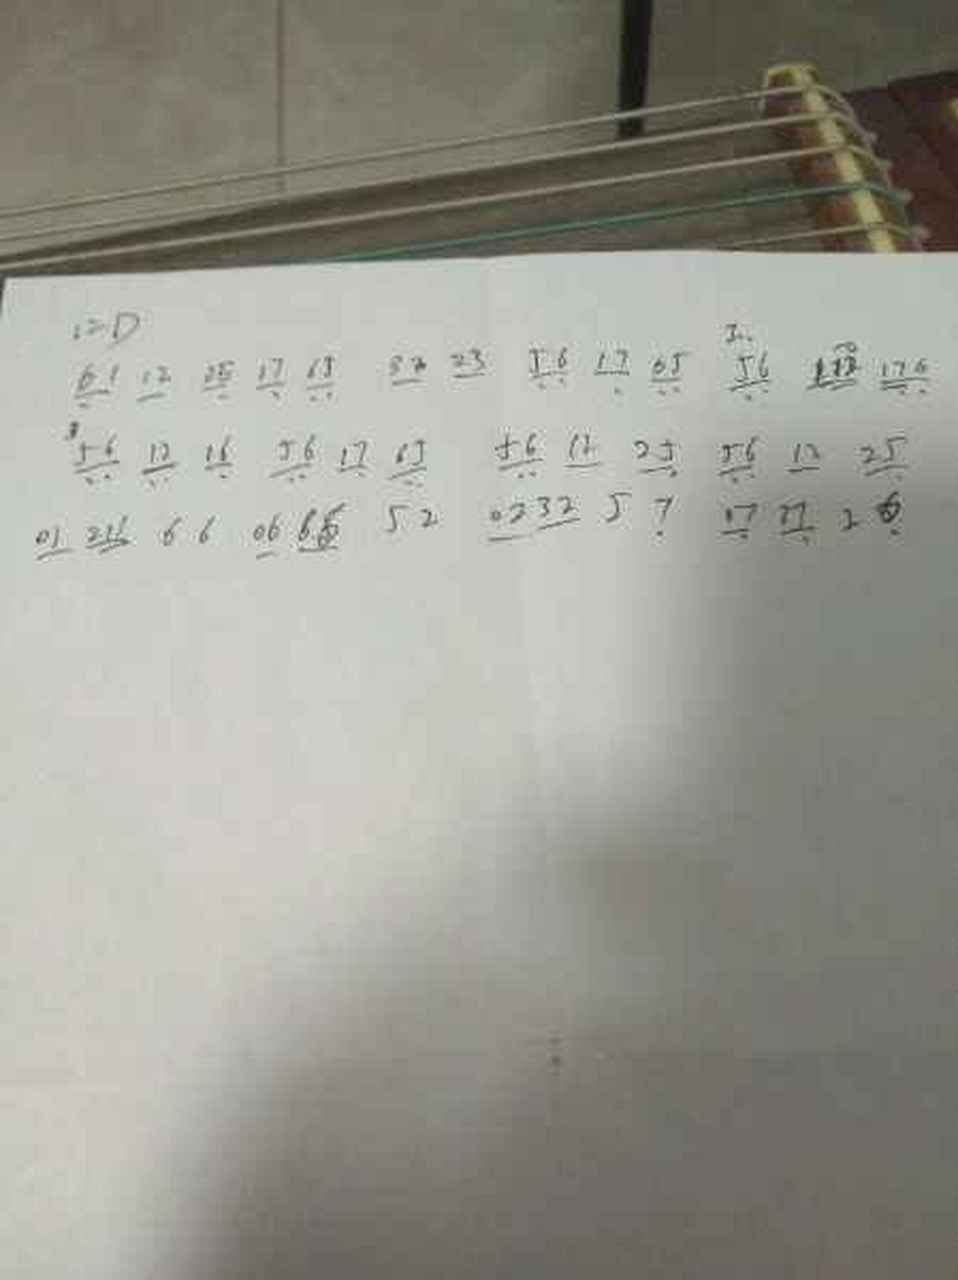 1=D
61 12 25 17 65 32 23 56 17 65 56 176
56 12 16 56 17 65 56 12 25 56 12 25
01 216 6 6 06 5 2 0232 5 7 17 2 6